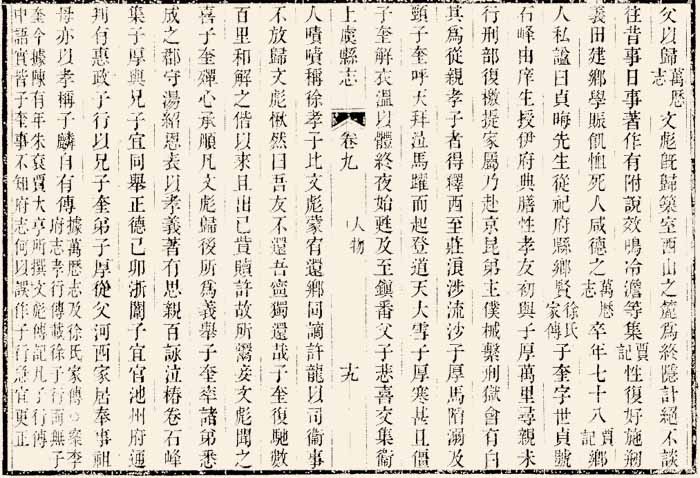 父以歸萬厯志文彪旣歸築室西山之麓爲終隱計絕不談
往昔事日事著作有附說效鳴冷澹等集賈記性復好施剏
義田建鄉學賑飢恤死人咸德之萬厯志卒年七十八賈記鄉
人私諡曰貞晦先生從祀府縣鄉賢徐氏家傳子奎字世貞號
石峰由庠生授伊府典膳性孝友初與子厚萬里尋親未
行刑部復檄提家屬乃赴京昆弟主僕械繫刑獄會有白
其爲從親孝子者得釋西至莊浪涉流沙子厚馬陷溺及
頸子奎呼天拜泣馬躍而起登道天大雪子厚寒甚且僵
子奎解衣溫以體終夜始甦及至鎭番父子悲喜交集衞
上虞縣志 卷九 人物 十九
人嘖嘖稱徐孝子比文彪蒙宥還鄉同謫許龍以司衞事
不放歸文彪愀然曰吾友不還吾奮獨還哉子奎復馳數
百里和解之偕以來且出己貲贖許故所鬻妾文彪聞之
喜子奎殫心承順凡文彪歸後所爲義舉子奎率諸弟悉
成之郡守湯紹恩表以孝義著有思親百詠泣椿卷石峰
集子厚與兄子宜同舉正德己卯浙闈子宜官池州府通
判有惠政子行以兄子奎弟子厚從父河西家居奉事祖
母亦以孝稱子麟自有傳據萬厯志及徐氏家傳○案李府志孝行傳載徐子行而無子
奎今據陳有年朱袞賈大亨所撰文彪傳記凡子行傳
中語實皆子奎事不知府志何以誤作子行急宜更正